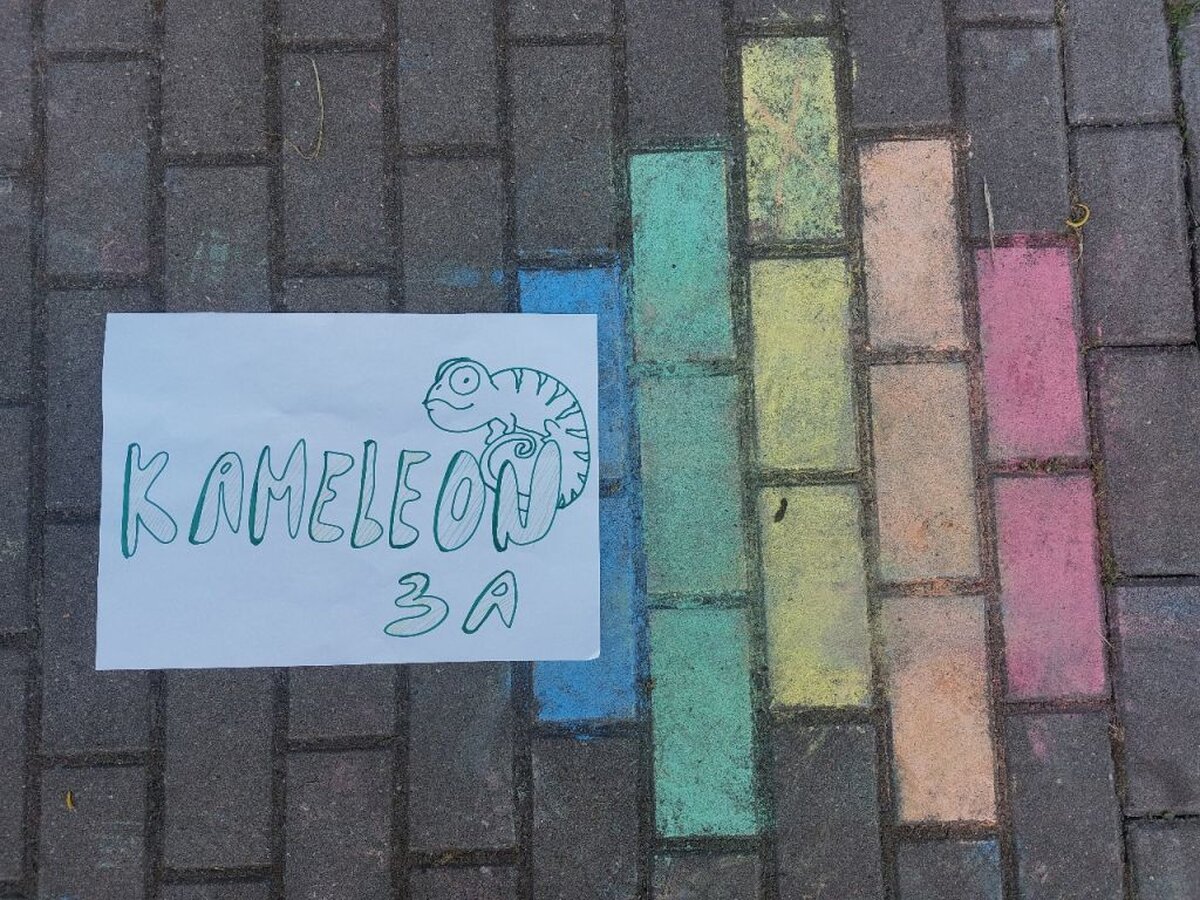 KAMELEON
3A